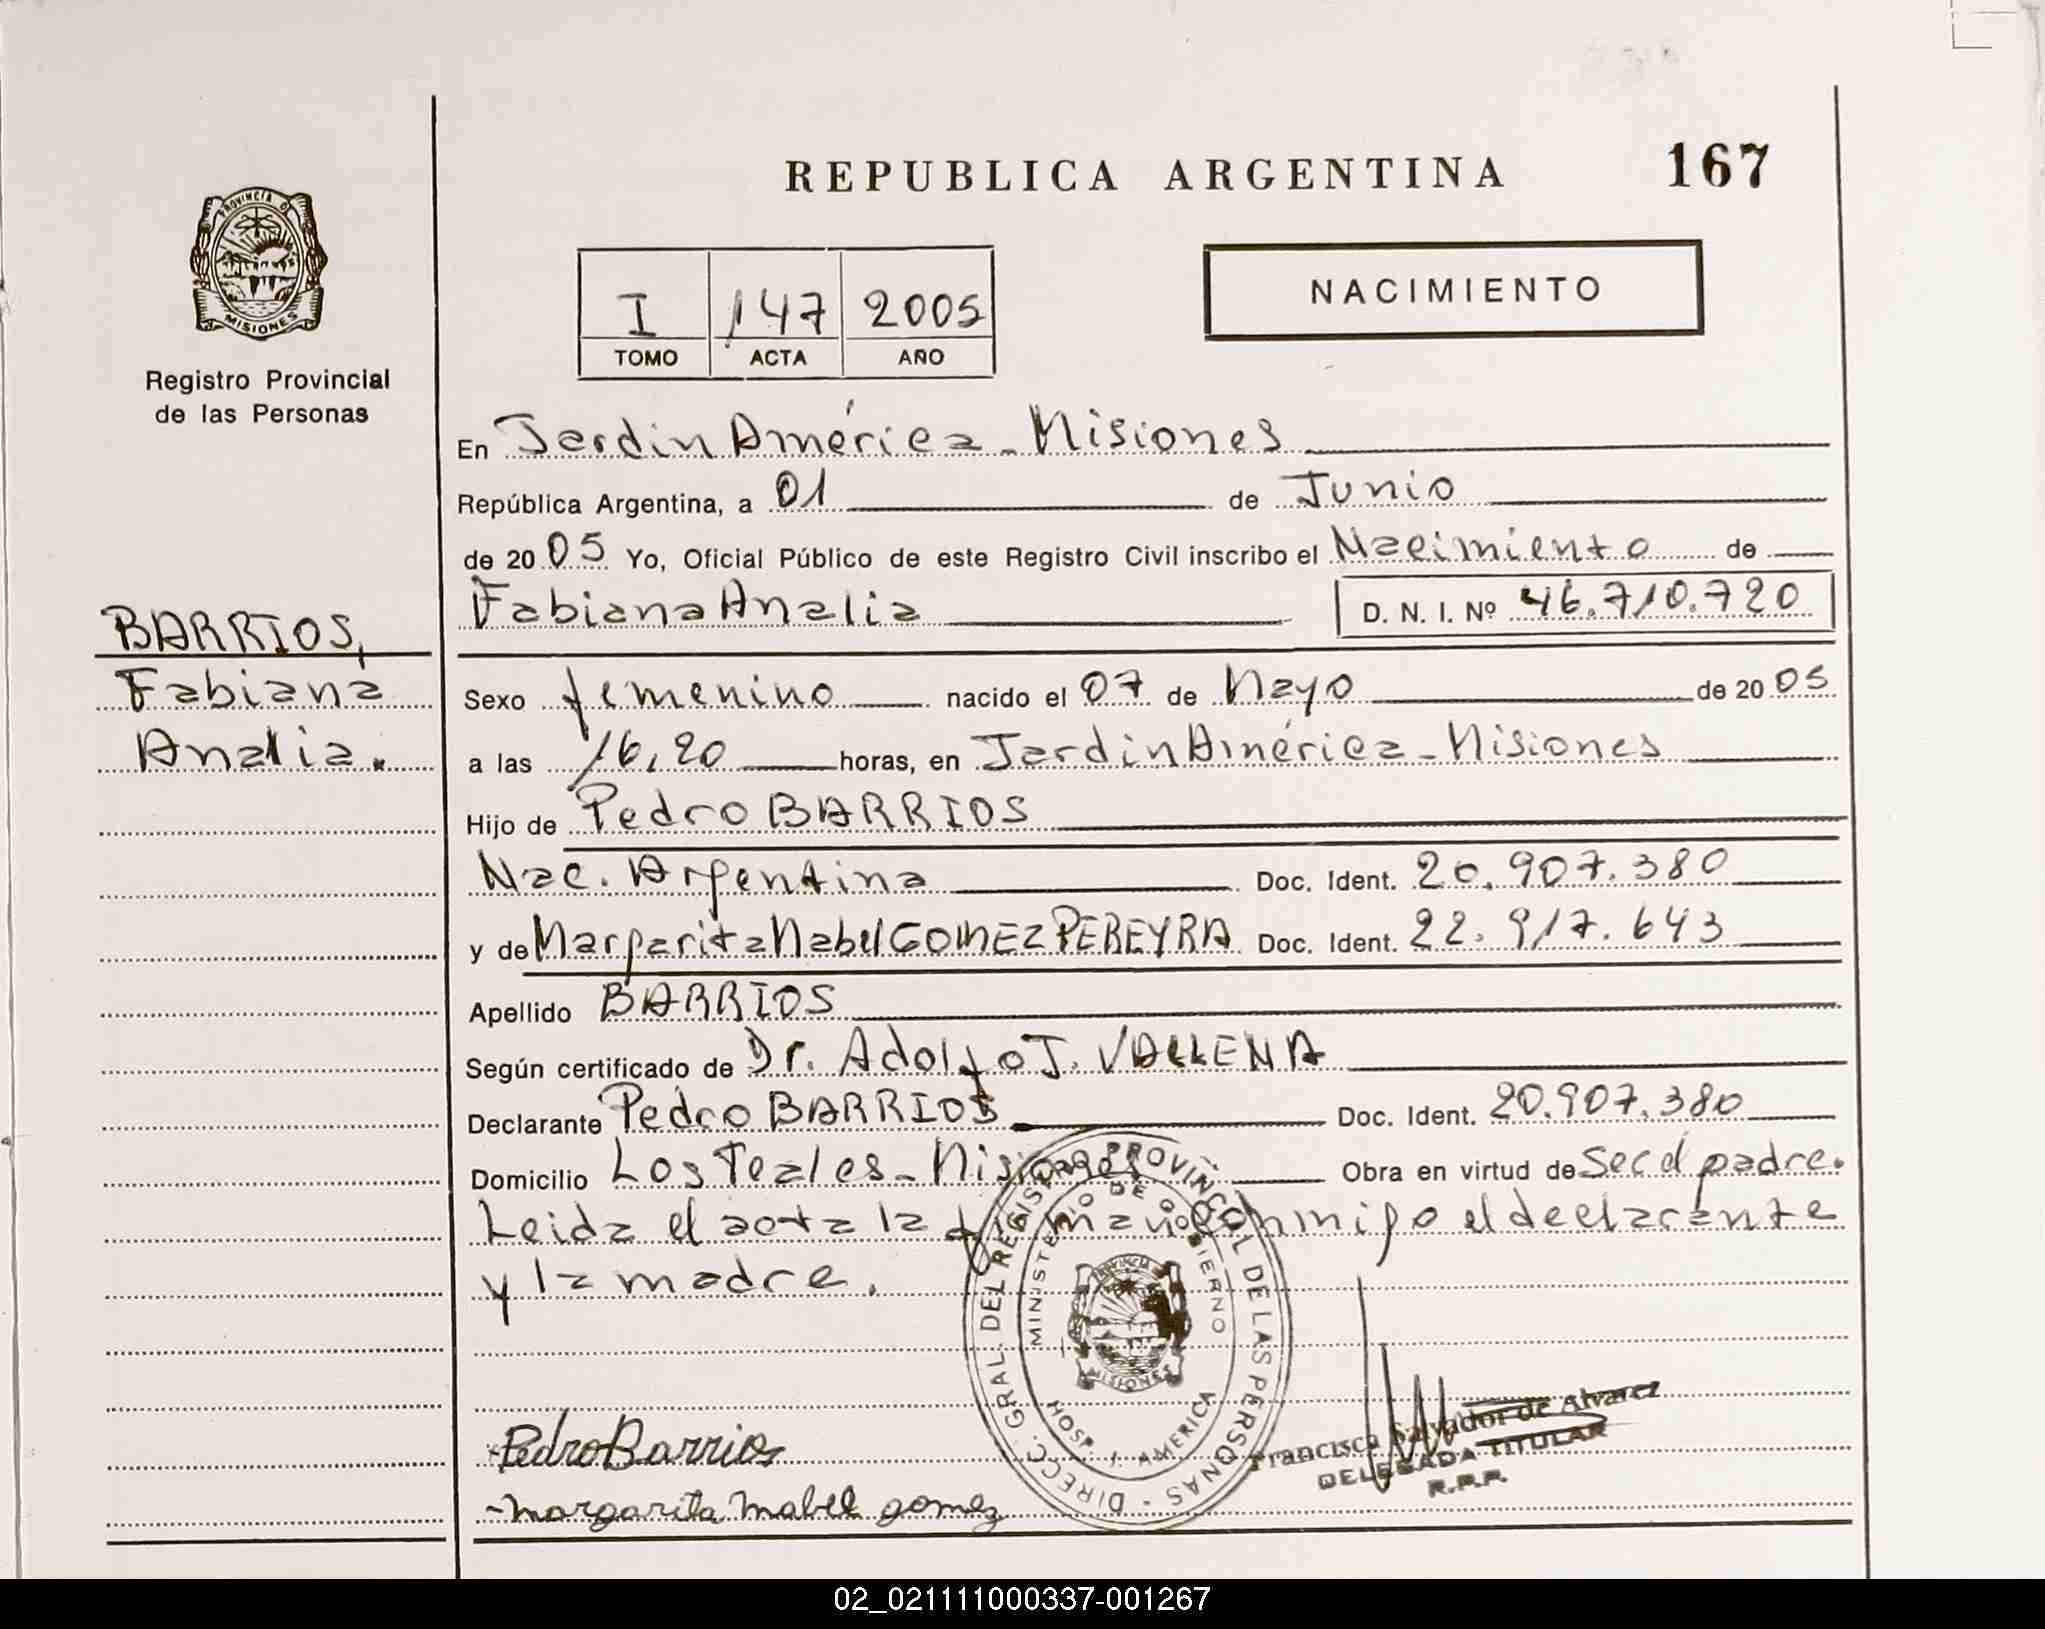 REPUBLICA ARGENTINA
167
PROVINCIA DE
MISIONES
Registro Provincial
de las Personas
I 147 2005
TOMO ACTA AÑO
NACIMIENTO
En Jardin América - Misiones
República Argentina, a 01 de Junio
de 20 05 Yo, Oficial Público de este Registro Civil inscribo el Nacimiento de
Fabiana Analia D. N. I. Nº 46.710.720
BARRIOS,
Fabiana
Analia.
Sexo femenino nacido el 07 de Mayo de 20 05
a las 16,20 horas, en Jardin América - Misiones
Hijo de Pedro BARRIOS
Nac. Argentina Doc. Ident. 20.907.380
y de Margarita Mabel GOMEZ PEREYRA Doc. Ident. 22.917.643
Apellido BARRIOS
Según certificado de Dr. Adolfo J. VALLENA
Declarante Pedro BARRIOS Doc. Ident. 20.907.380
Domicilio Los Teales - Misiones Obra en virtud de Sec d padre.
Leida el acta la firman conmigo el declarante
y la madre.
DIRECC. GRAL. DEL REGISTRO PROVINCIAL DE LAS PERSONAS
MINISTERIO DE GOBIERNO
HOSP. J. AMERICA
MISIONES
Pedro Barrios
Margarita Mabel gomez
Francisca Salvador de Alvarez
DELEGADA TITULAR
R.P.P.
02_021111000337-001267